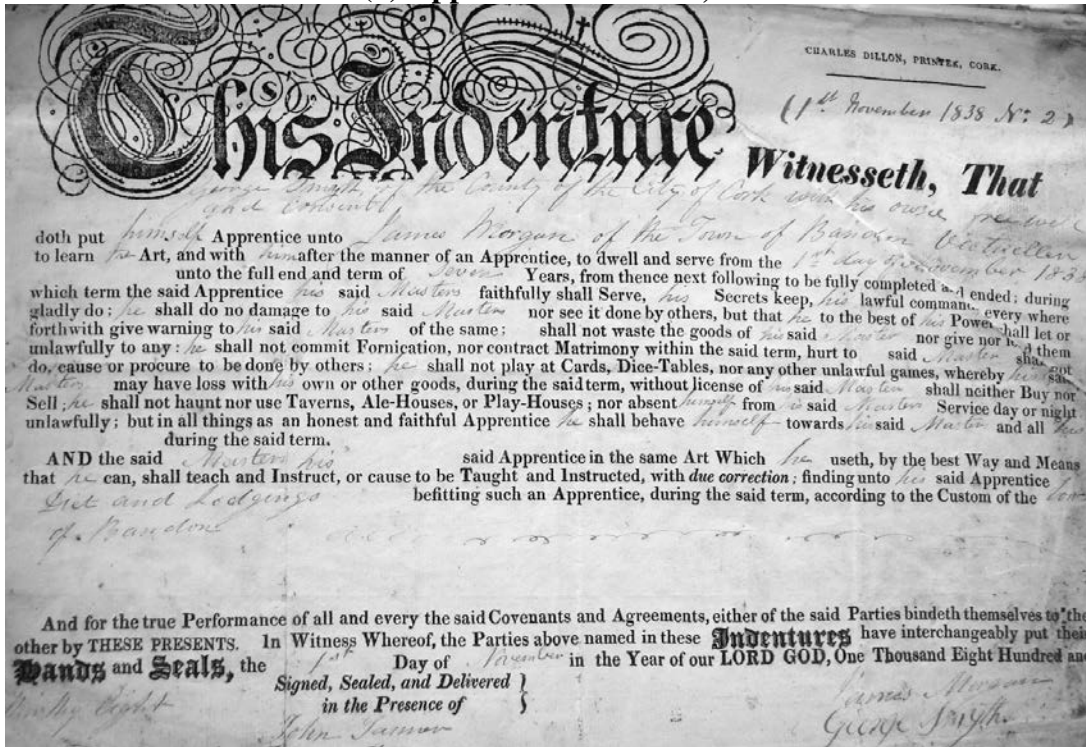 CHARLES DILLON, PRINTER, CORK.
(1st November 1838 No. 2)
This Indenture Witnesseth, That
George Smyth of the County of the City of Cork with his owne free will
and consent
doth put himself Apprentice unto James Morgan of the Town of Bandon Victueller
to learn the Art, and with him after the manner of an Apprentice, to dwell and serve from the 1st day of November 183
unto the full end and term of Seven Years, from thence next following to be fully completed and ended; during
which term the said Apprentice his said Masters faithfully shall Serve, his Secrets keep, his lawful command every where
gladly do; he shall do no damage to his said Masters nor see it done by others, but that he to the best of his Power shall let or
forthwith give warning to his said Masters of the same; shall not waste the goods of his said Master nor give nor them
unlawfully to any: he shall not commit Fornication, nor contract Matrimony within the said term, hurt to said Master shall not
do, cause or procure to be done by others: he shall not play at Cards, Dice-Tables, nor any other unlawful games, whereby his said
Masters may have loss with his own or other goods, during the said term, without license of his said Master shall neither Buy nor
Sell; he shall not haunt nor use Taverns, Ale-Houses, or Play-Houses; nor absent himself from his said Masters Service day or night
unlawfully; but in all things as an honest and faithful Apprentice he shall behave himself towards his said Master and all his
during the said term.
AND the said Masters his said Apprentice in the same Art Which he useth, by the best Way and Means
that he can, shall teach and Instruct, or cause to be Taught and Instructed, with due correction; finding unto his said Apprentice
Diet and Lodgings befitting such an Apprentice, during the said term, according to the Custom of the Town
of Bandon
And for the true Performance of all and every the said Covenants and Agreements, either of the said Parties bindeth themselves to the
other by THESE PRESENTS. In Witness Whereof, the Parties above named in these Indentures have interchangeably put their
Hands and Seals, the 1st Day of November in the Year of our LORD GOD, One Thousand Eight Hundred and
Thirty Eight
Signed, Sealed, and Delivered
in the Presence of
James Morgan
John
George Smyth